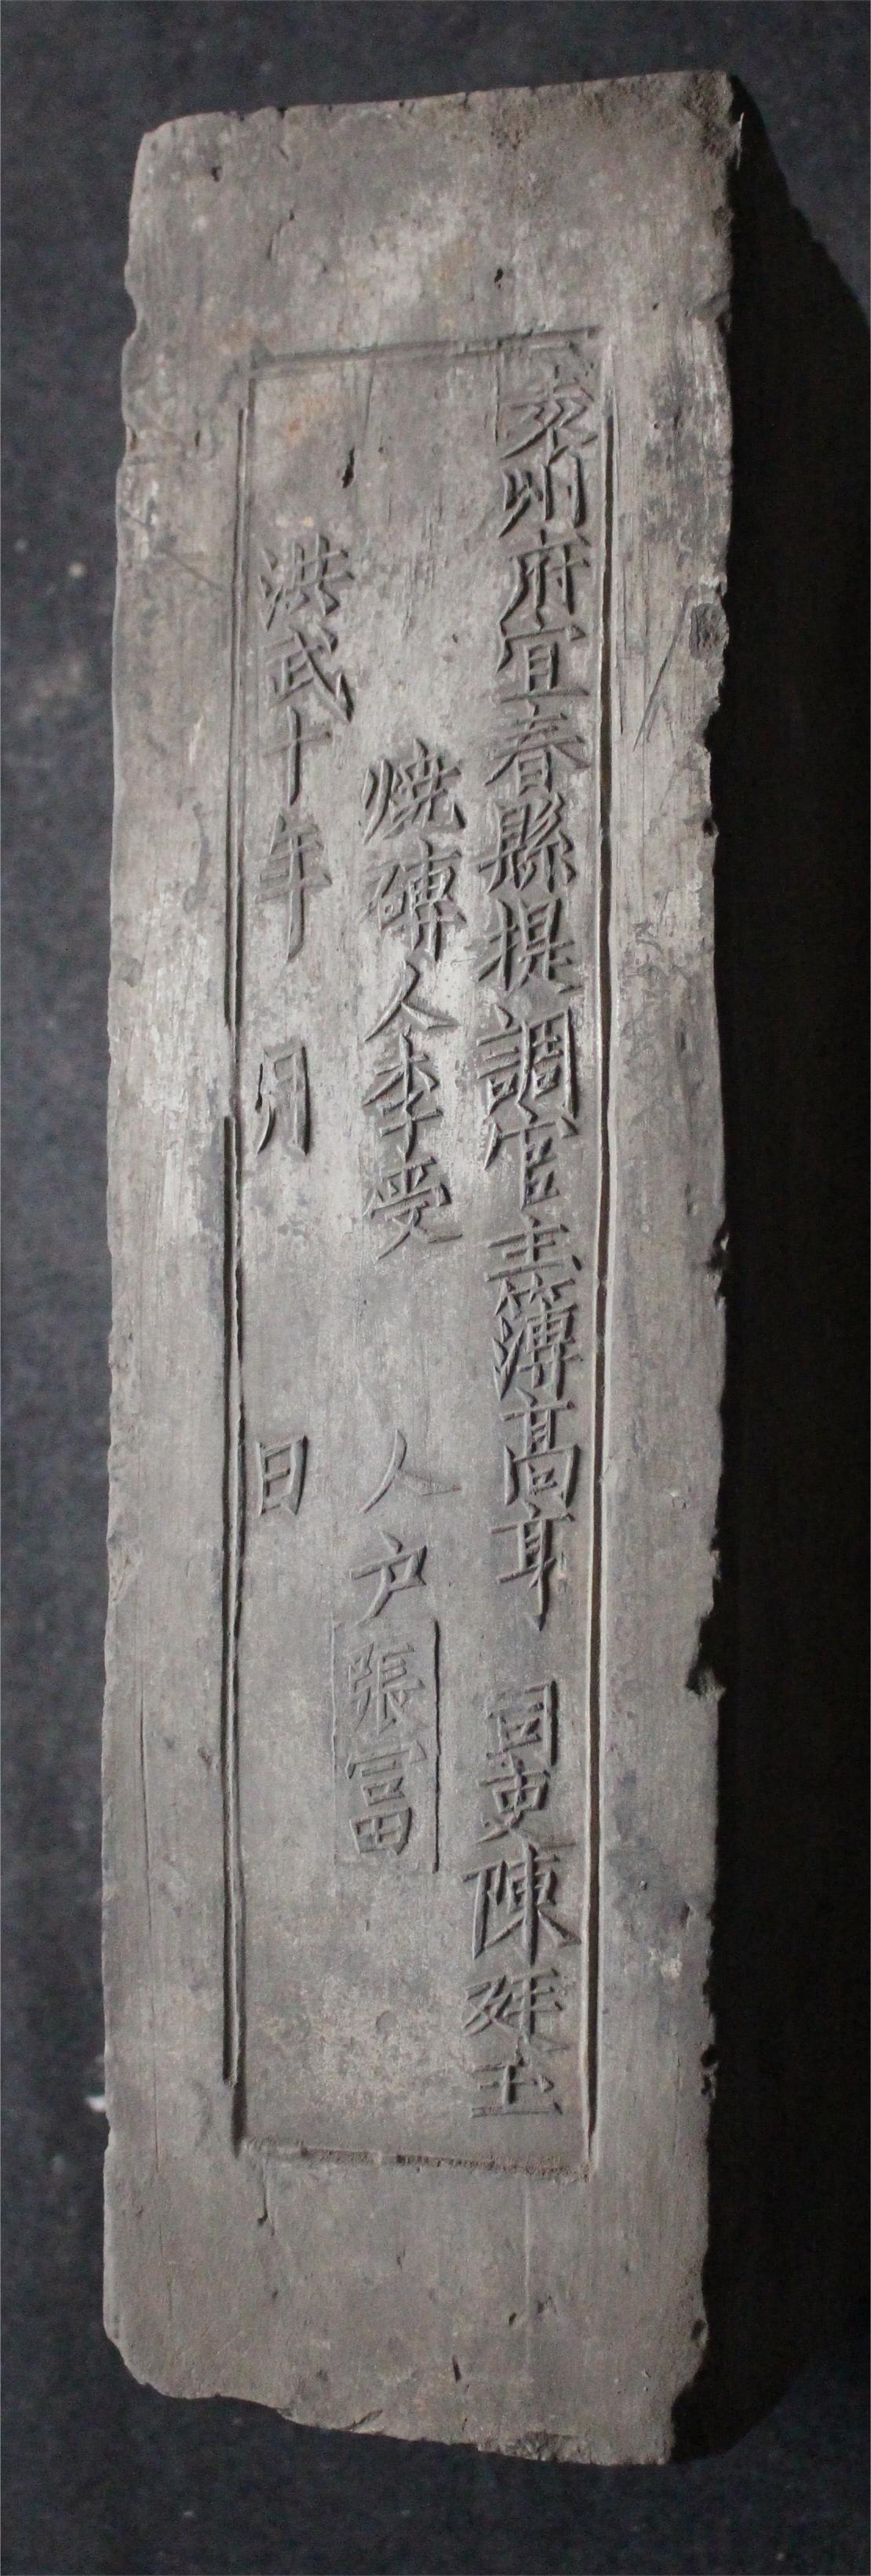 袁州府宜春縣提調官主簿高亨 司吏陳廷玉
燒磚人李受 人户張富
洪武十年 月 日